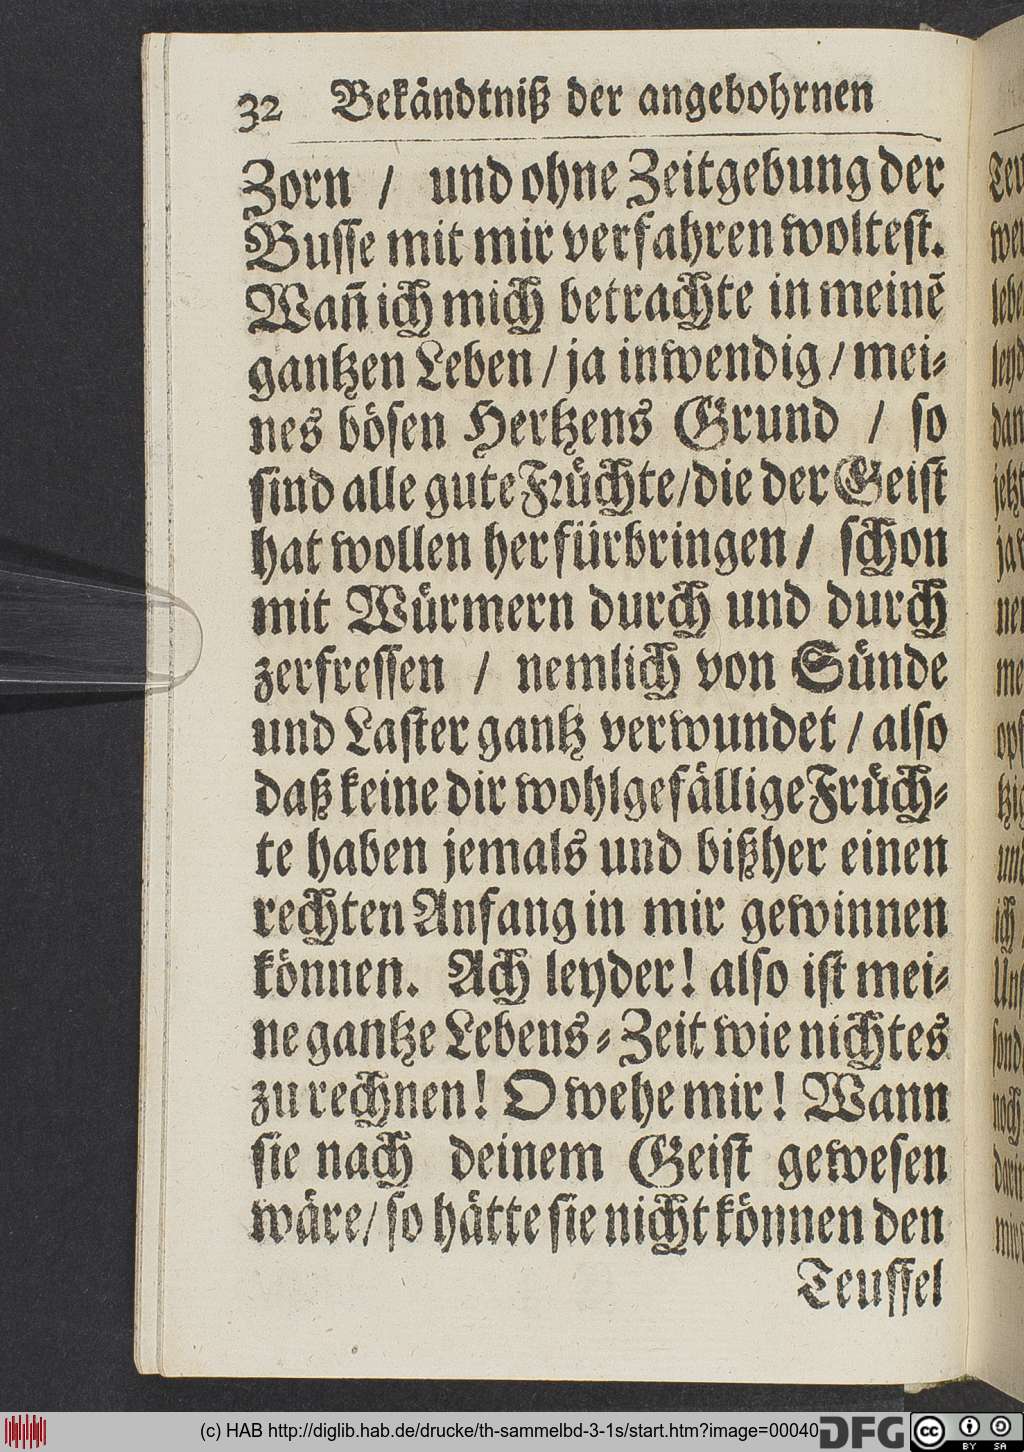 32 Bekändtniß der angebohrnen
Zorn / und ohne Zeitgebung der
Busse mit mir verfahren woltest.
Wañ ich mich betrachte in meinẽ
gantzen Leben / ja inwendig / mei⸗
nes bösen Hertzens Grund / so
sind alle gute Früchte / die der Geist
hat wollen herfürbringen / schon
mit Würmern durch und durch
zerfressen / nemlich von Sünde
und Laster gantz verwundet / also
daß keine dir wohlgefällige Früch⸗
te haben jemals und bißher einen
rechten Anfang in mir gewinnen
können. Ach leyder! also ist mei⸗
ne gantze Lebens⸗Zeit wie nichtes
zu rechnen! O wehe mir! Wann
sie nach deinem Geist gewesen
wäre / so hätte sie nicht können den
Teuffel
(c) HAB http://diglib.hab.de/drucke/th-sammelbd-3-1s/start.htm?image=00040
DFG
cc BY SA